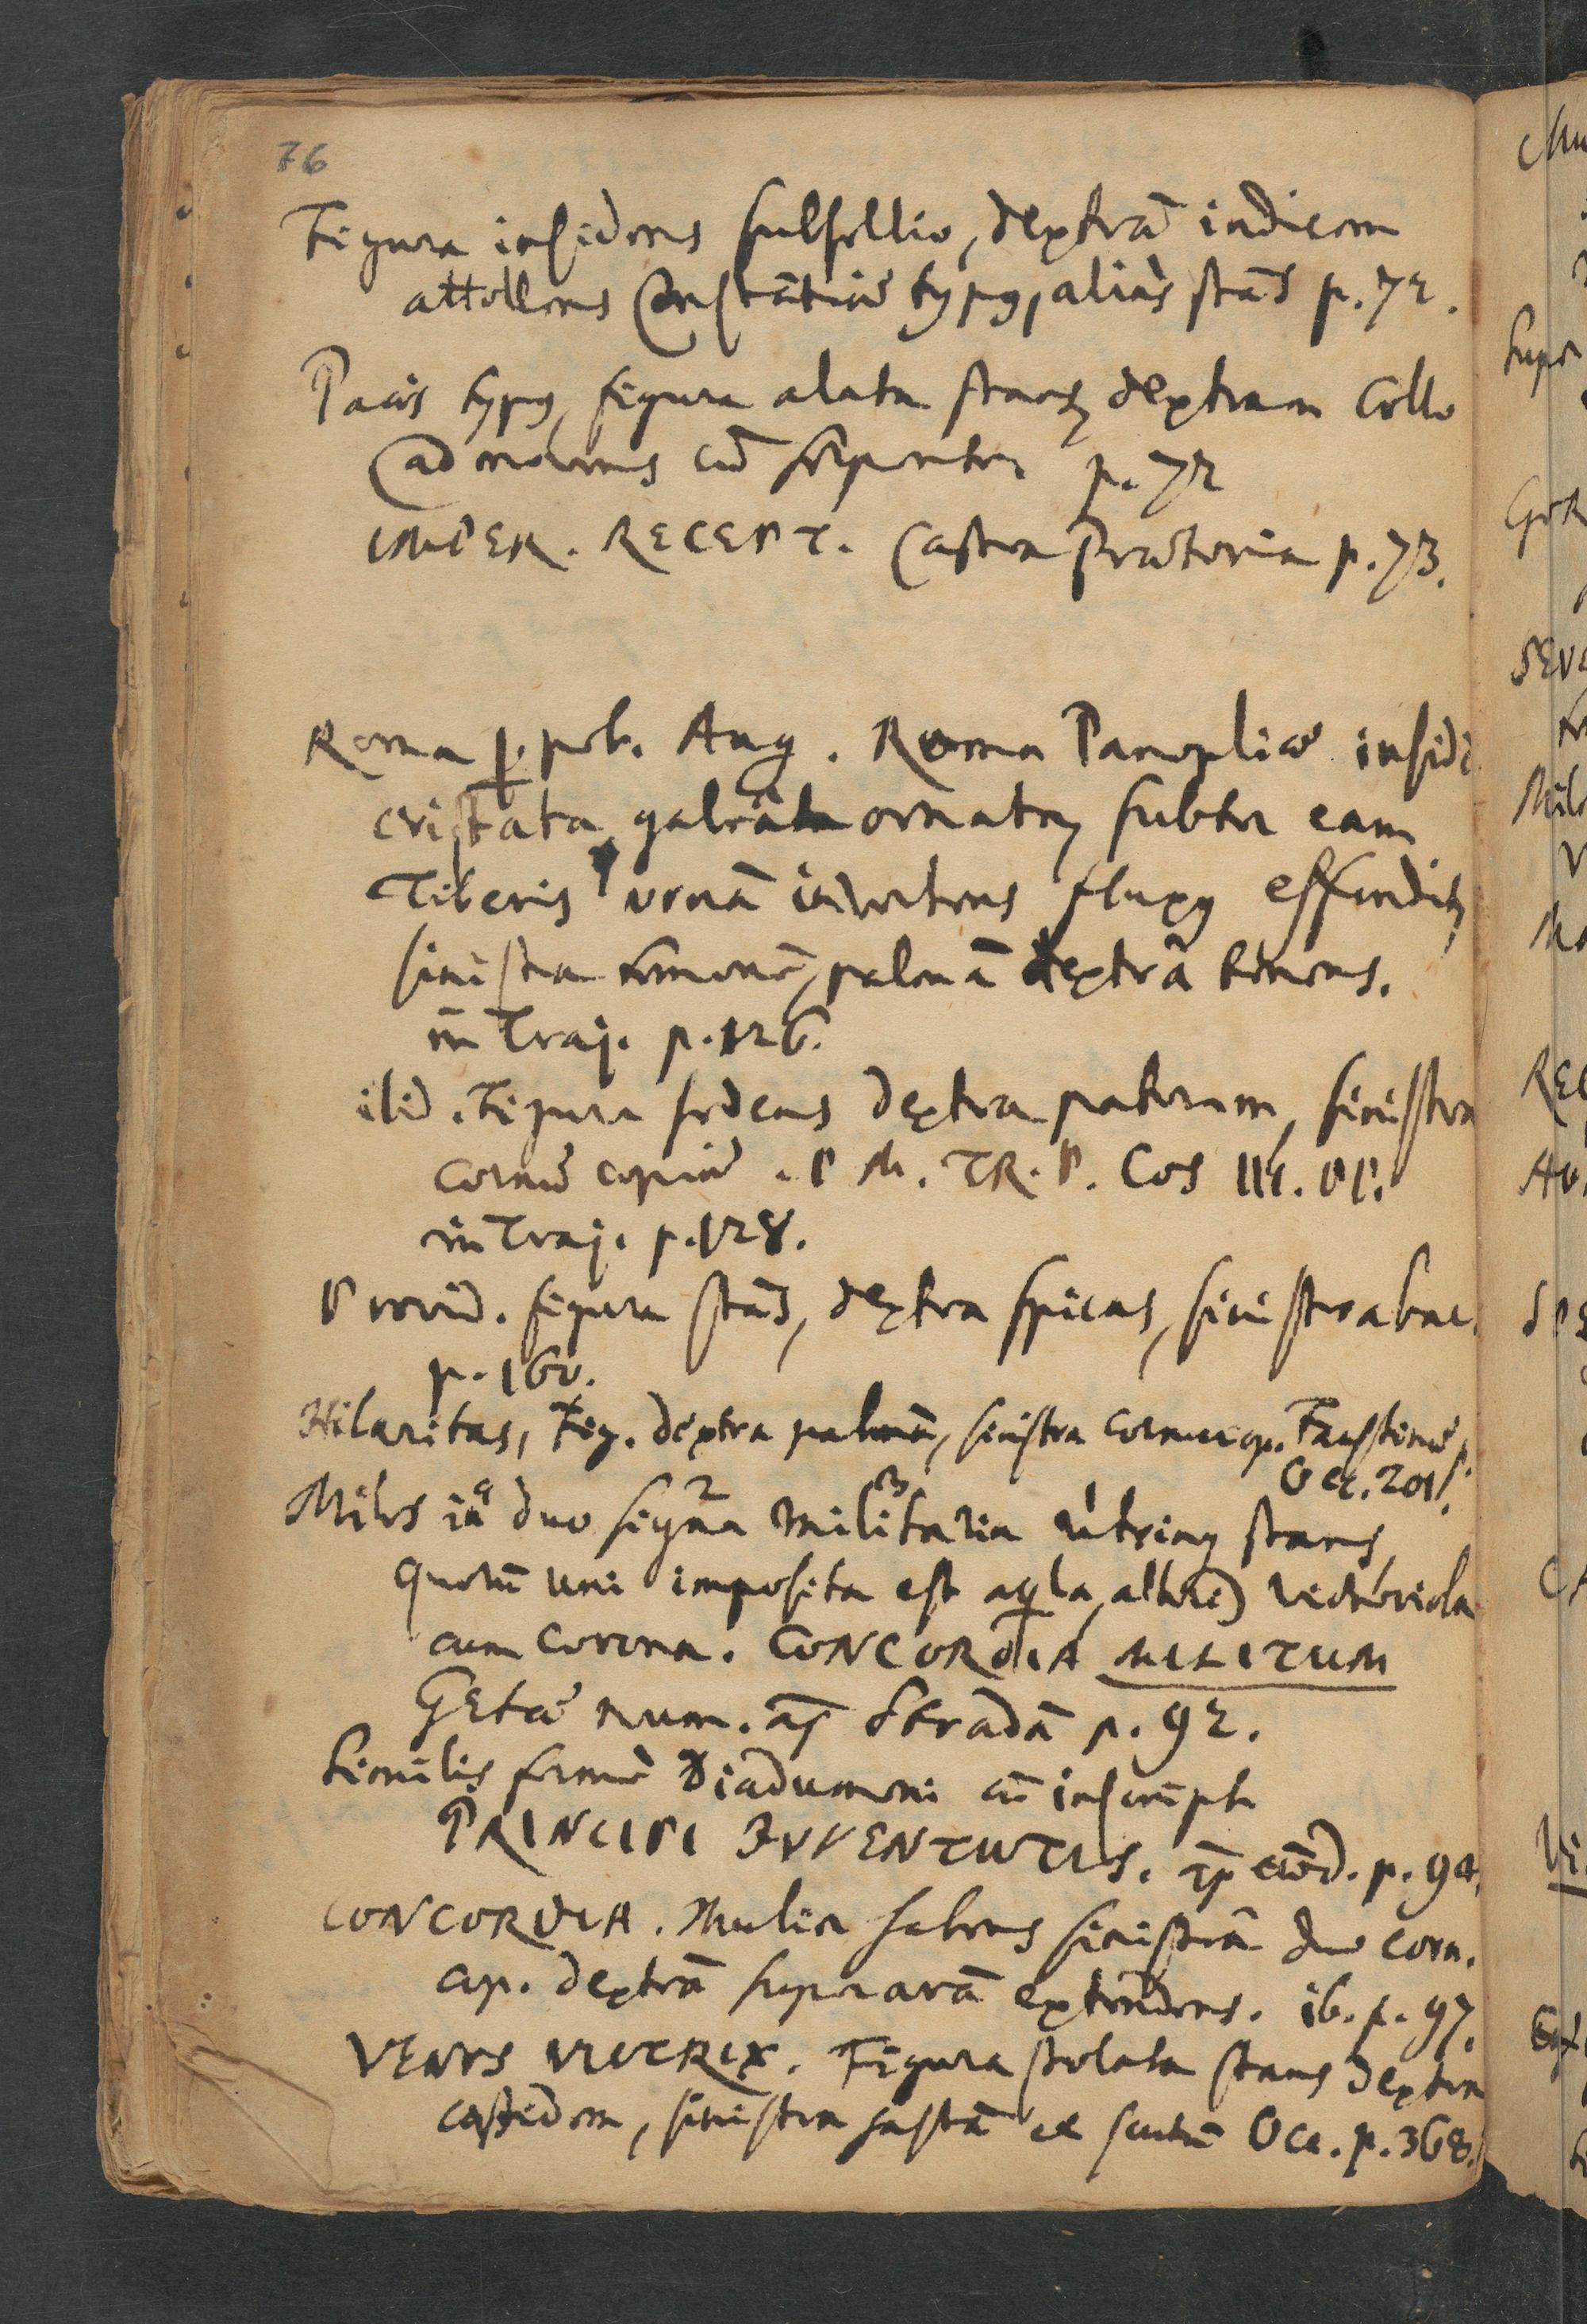 76
Figura insidens subsellio, dextrā indicem
attollens Constātiæ typ9, aliàs stās p. 72.
Pacis typ9, figura alata stans, dextram collo
admovens cū serpente p. 72
IMPER. RECEPT. Castra Prætoria p. 73.
Roma p. pet. Aug. Roma Panopliæ insid
cristata galea ornata, subter eam
Tiberis urnā invertens flux9 effundit,
sinistra temonē, palmā dextrā tenens.
in Traj. p. 126.
ibid. Figura sedens dextra pateram, sinistra
cornu copiæ. P M. TR. P. Cos IIII. PP.
in Traj. p. 128.
Provid. figura stās, dextra spicas, sinistra
p. 160.
Hilaritas, Fig. dextra palmā, sinistra cornucop. Faustinæ
Occ. 201.
Miles duo signa militaria utrinq stans,
quorū uni imposita est aqla, alteri victoriola
cum corona. CONCORDIA MILITUM
Getæ num. ap Stradā p. 92.
Similis fermè Diadumeni cū inscript
PRINCIPI IVVENTUTIS. ap eūd. p. 94.
CONCORDIA. Mulier habens sinistrā duo corn.
cop. dextrā super arā extendens. ib. p. 97.
VENVS VICTRIX. Figura stolata stans dextra
cassidem, sinistra hastā et scutū Occ. p. 368.